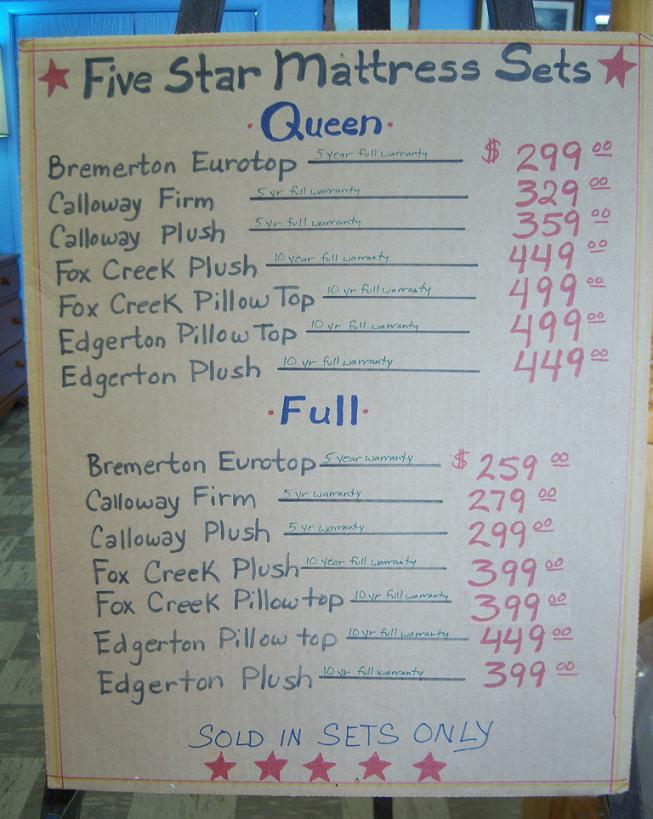 Five Star Mattress Sets
Queen
Bremerton Eurotop 5 year full warranty $ 299.00
Calloway Firm 5 yr full warranty 329.00
Calloway Plush 5 yr full warranty 359.00
Fox Creek Plush 10 year full warranty 449.00
Fox Creek Pillow Top 10 yr full warranty 499.00
Edgerton Pillow Top 10 yr full warranty 499.00
Edgerton Plush 10 yr full warranty 449.00
Full
Bremerton Eurotop 5 year warranty $ 259.00
Calloway Firm 5 yr warranty 279.00
Calloway Plush 5 yr warranty 299.00
Fox Creek Plush 10 year full warranty 399.00
Fox Creek Pillow top 10 yr full warranty 399.00
Edgerton Pillow top 10 yr full warranty 449.00
Edgerton Plush 10 yr full warranty 399.00
SOLD IN SETS ONLY